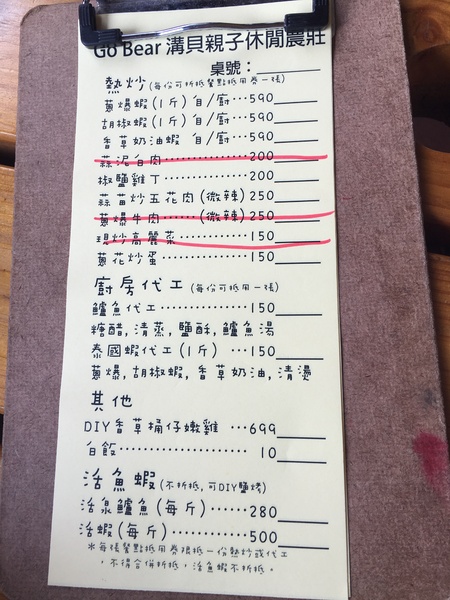 Go Bear 溝貝親子休閒農莊
桌號：
熱炒 (每份可折抵餐點抵用券一張)
蔥爆蝦(1斤) 自/廚⋯590
胡椒蝦(1斤) 自/廚⋯590
香草奶油蝦 自/廚⋯590
蒜泥白肉⋯⋯⋯⋯200
椒鹽雞丁⋯⋯⋯⋯200
蒜苗炒五花肉(微辣)250
蔥爆牛肉⋯⋯(微辣)250
現炒高麗菜⋯⋯⋯⋯150
蔥花炒蛋⋯⋯⋯⋯150
廚房代工 (每份可抵用一張)
鱸魚代工⋯⋯⋯⋯150
糖醋,清蒸,鹽酥,鱸魚湯
泰國蝦代工(1斤) ⋯150
蔥爆,胡椒蝦,香草奶油,清燙
其他
DIY香草桶仔嫩雞 ⋯699
白飯⋯⋯⋯⋯⋯⋯10
活魚蝦 (不折抵,可DIY鹽烤)
活泉鱸魚(每斤)⋯⋯280
活蝦(每斤)⋯⋯⋯⋯500
＊每張餐點抵用券限抵一份熱炒或代工
，不得合併折抵，活魚蝦不折抵。